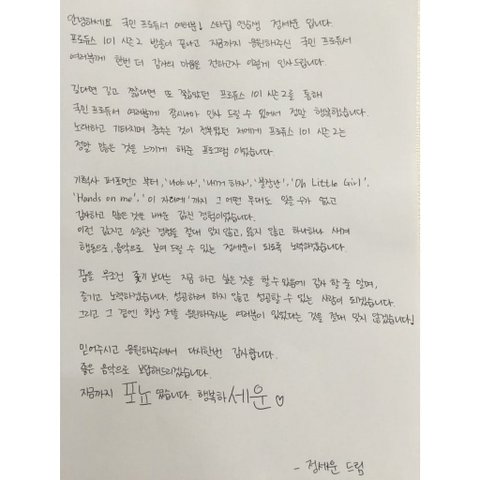 안녕하세요 국민 프로듀서 여러분! 스타쉽 연습생 정세운 입니다.
프로듀스 101 시즌2 방송이 끝나고 지금까지 응원해주신 국민 프로듀서
여러분께 한번 더 감사의 마음을 전하고자 이렇게 인사드립니다.
길다면 길고 짧다면 또 짧았던 프로듀스 101 시즌2를 통해
국민 프로듀서 여러분께 잠시나마 인사 드릴 수 있어서 정말 행복했습니다.
노래하고 기타치며 춤추는 것이 전부였던 저에게 프로듀스 101 시즌2는
정말 많은 것을 느끼게 해준 프로그램 이었습니다.
기획사 퍼포먼스 부터, '나야 나', '내꺼 하자', '불장난', 'Oh Little Girl',
'Hands on me', '이 자리에' 까지 그 어떤 무대도 잊을 수가 없고
감사하고 많은 것을 배운 값진 경험이었습니다.
이런 값지고 소중한 경험들 절대 잊지 않고, 잃지 않고 하나하나 새기며
행동으로, 음악으로 보여 드릴 수 있는 정세운이 되도록 노력하겠습니다.
꿈을 무조건 쫓기 보다는 지금 하고 싶은 것을 할 수 있음에 감사 할 줄 알며,
즐기고 노력하겠습니다. 성공하려 하지 않고 성공할 수 있는 사람이 되겠습니다.
그리고 그 곁엔 항상 저를 응원해주시는 여러분이 있었다는 것을 절대 잊지 않겠습니다!
믿어주시고 응원해주셔서 다시한번 감사합니다.
좋은 음악으로 보답해드리겠습니다.
지금까지 포뇨 였습니다. 행복하세운♡
- 정세운 드림